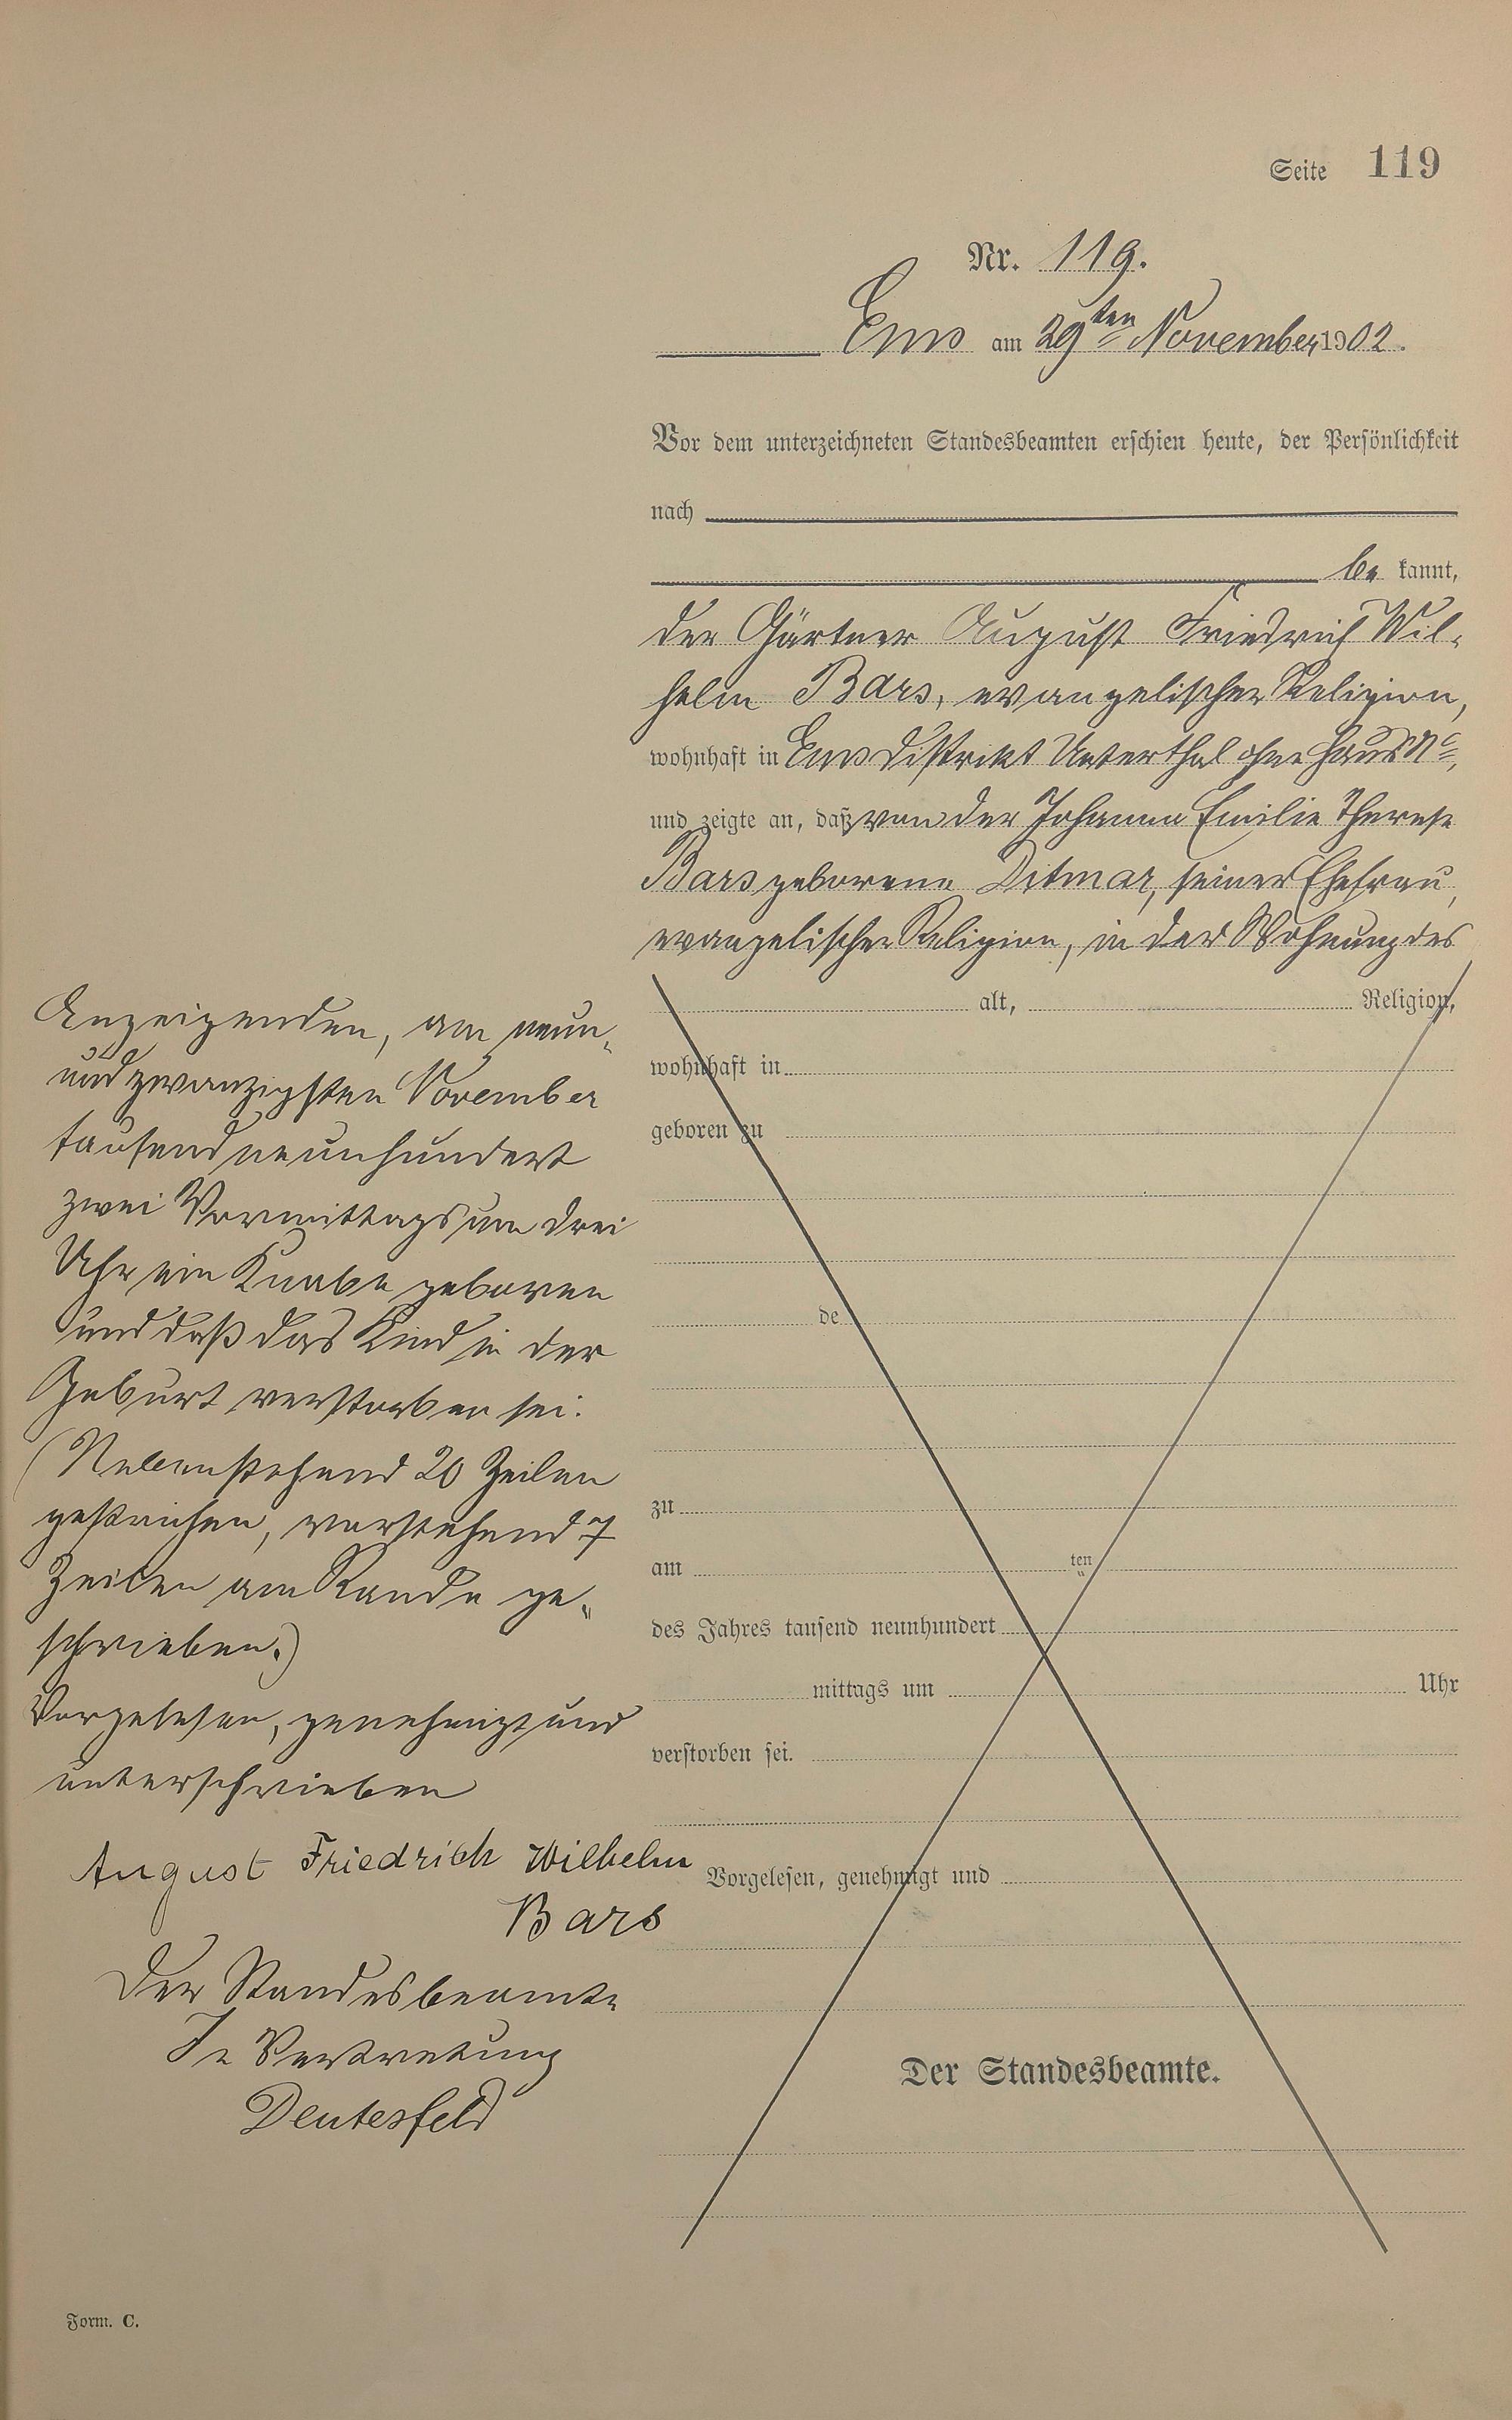 Seite 119
Nr. 119.
Ems am 29ten November 1902.
Vor dem unterzeichneten Standesbeamten erschien heute, der Persönlichkeit
nach
be kannt,
der Gärtner August Friedrich Wil-
helm Bars, evangelischer Religion,
wohnhaft in Ems Distrikt Unterthal ohne Haus No,
und zeigte an, daß von der Johanna Emilie Therese
Bars geborene Ditmar, seiner Ehefrau,
evangelischer Religion, in der Wohnung des
Anzeigenden, am neun-
und zwanzigsten November
tausend neunhundert
zwei Vormittags um drei
Uhr ein Knabe geboren
und daß das Kind in der
Geburt verstorben sei.
(Nebenstehend 20 Zeilen
gestrichen, vorstehend 7
Zeilen am Rande ge-
schrieben.)
Vorgelesen, genehmigt und
unterschrieben
August Friedrich Wilhelm
Bars
Der Standesbeamte
In Vertretung
Deutesfeld
alt, Religion,
wohnhaft in
geboren zu
de
zu
am ten
des Jahres tausend neunhundert
mittags um Uhr
verstorben sei.
Vorgelesen, genehmigt und
Der Standesbeamte.
Form. C.